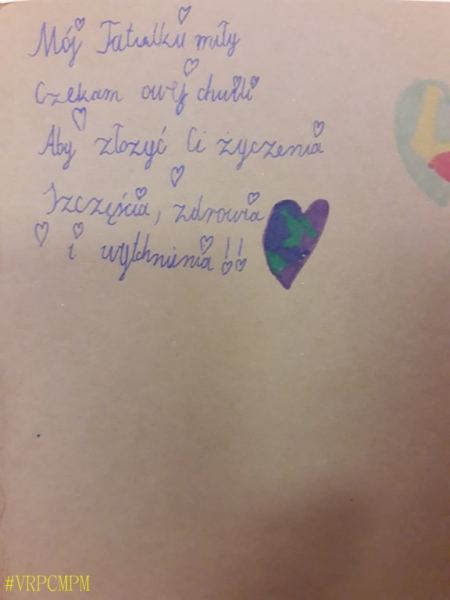 Mój Tatulku miły
Czekam owej chwili
Aby złożyć Ci życzenia
Szczęścia, zdrowia
i wytchnienia!!
#VRPCMPM